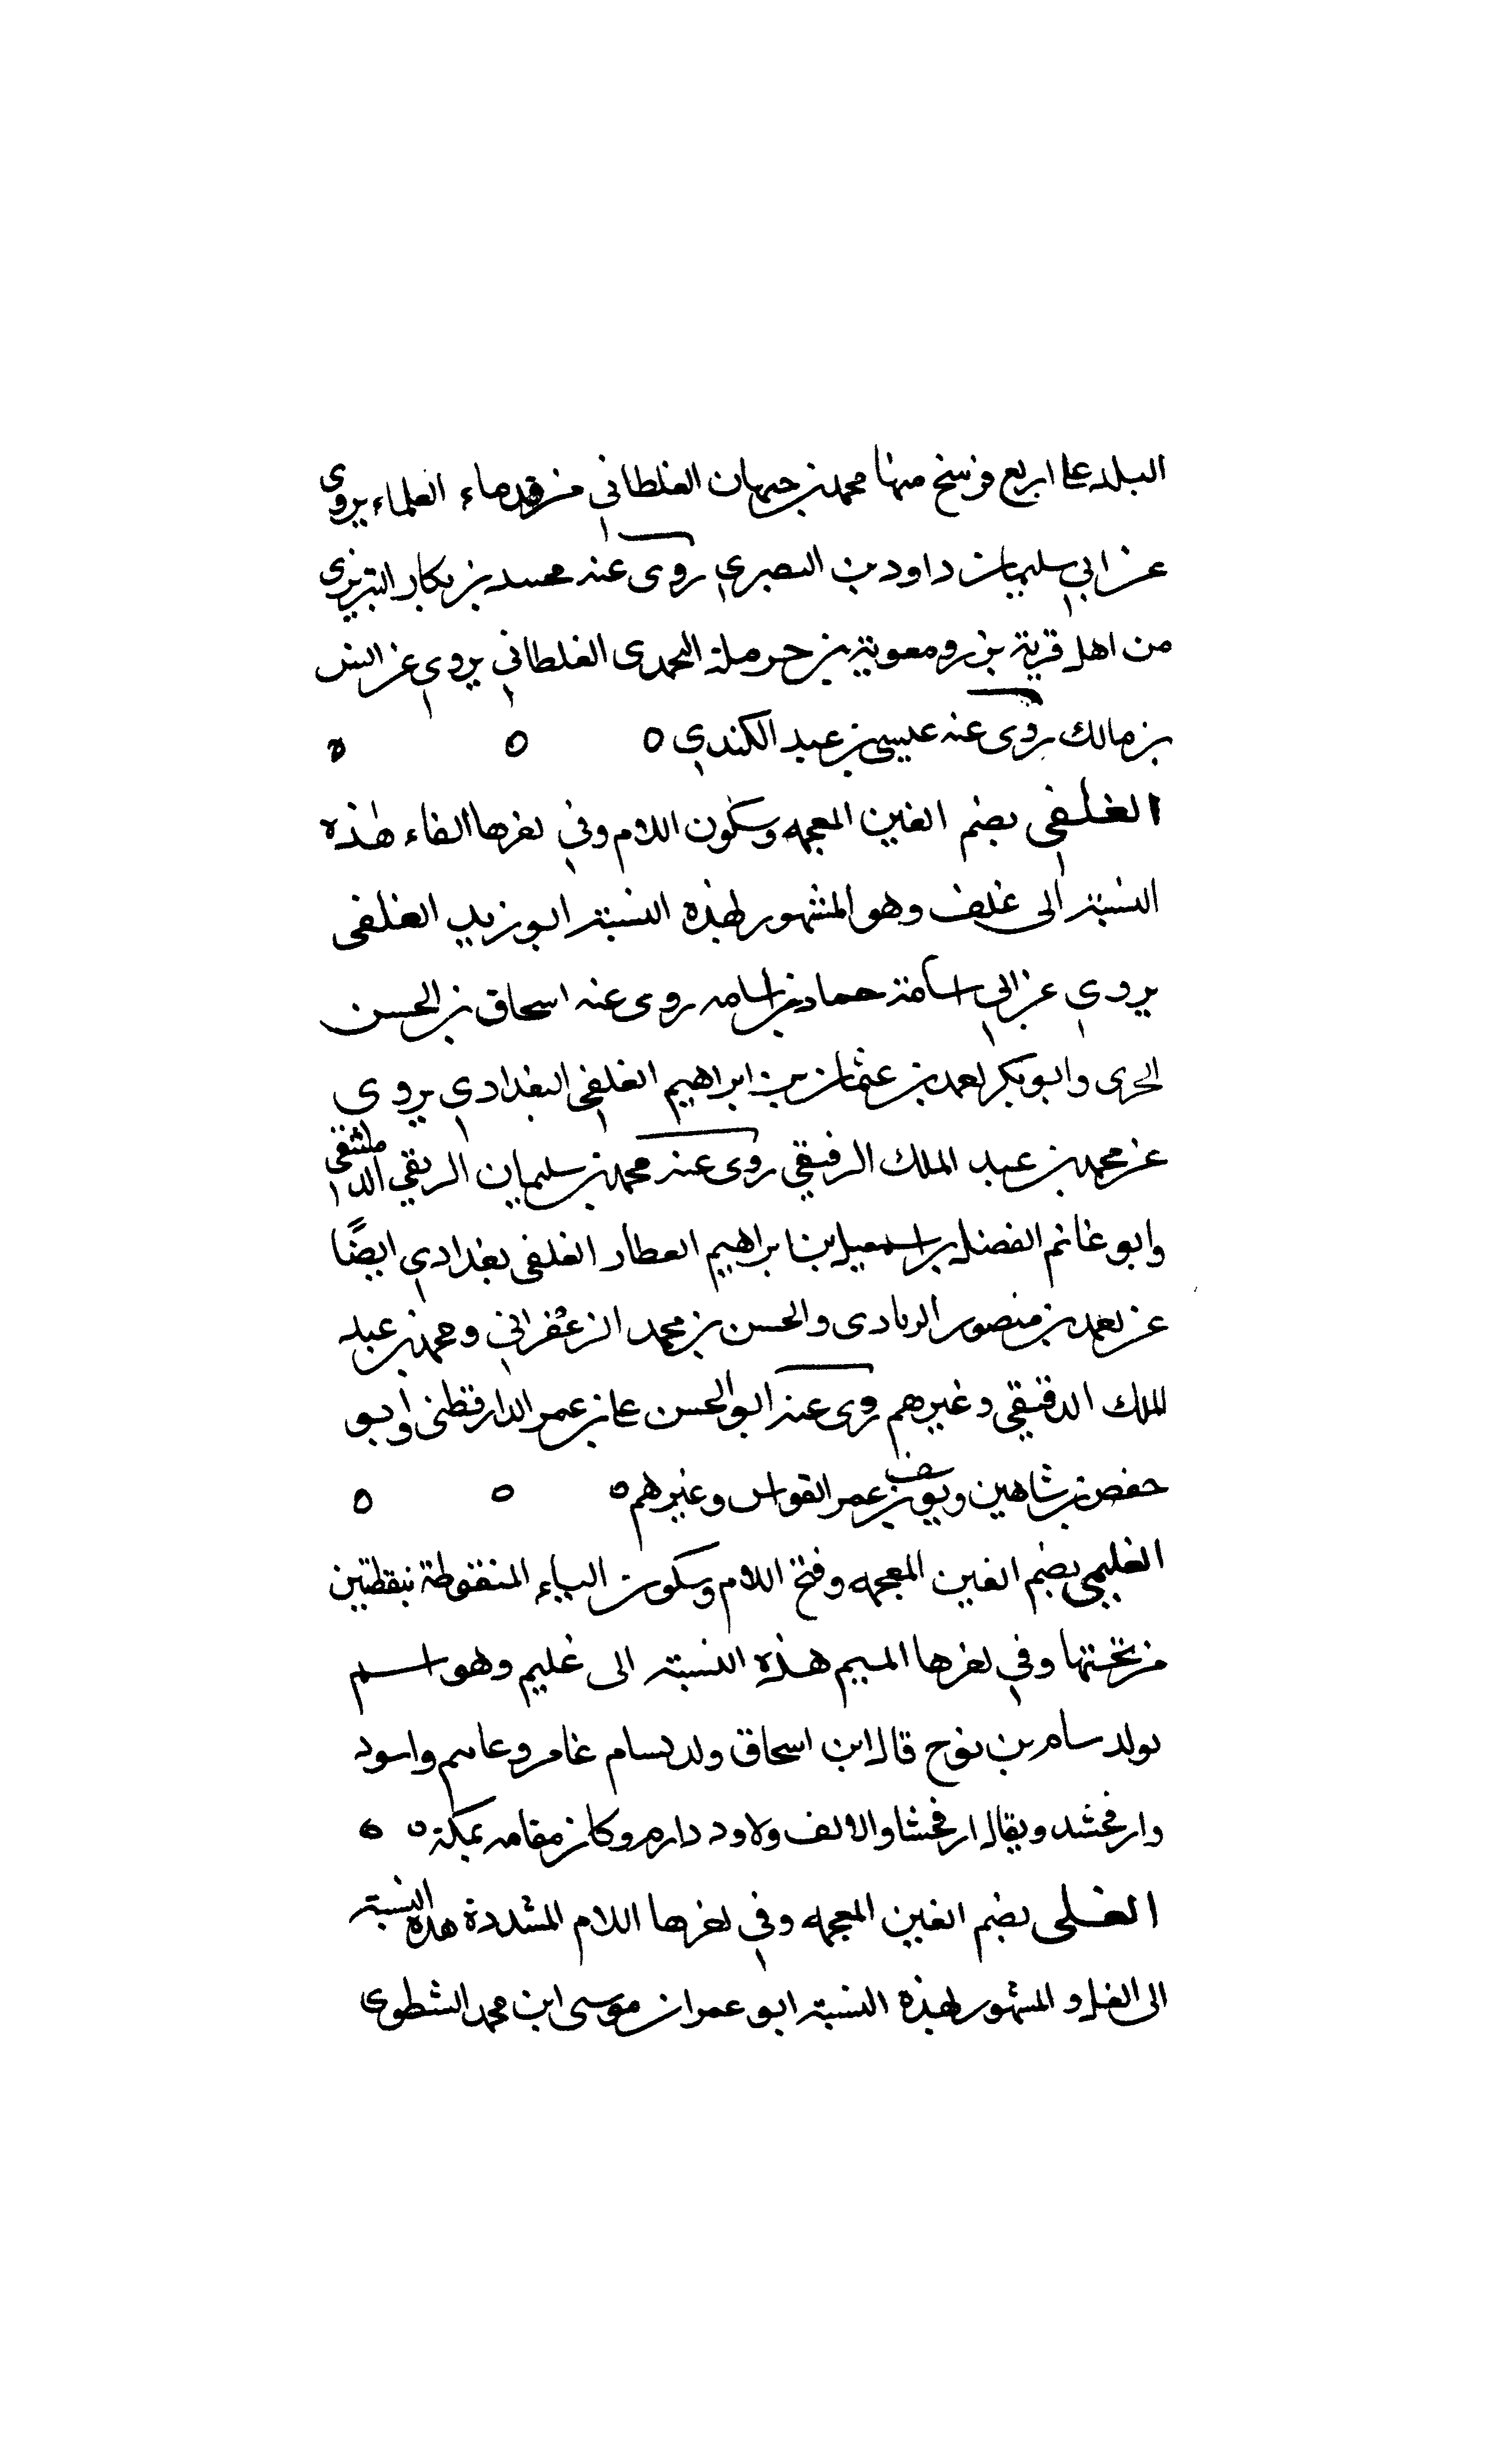 البلد على اربع فرسخ منها محمد بن جيهان الغلطاني من قدماء العلماء يروي
عن ابي سليمان داود بن البصري روى عنه محمد بن بكار التبريزي
من اهل قرية بزرو معوية بن حرملة اليحمدى الغلطاني يروي عن انس
بن مالك روى عنه عيسى بن عبد الكندي ٥ ٥ ٥
الغلفي بضم الغين المعجمه وسكون اللام وفي اخرها الفاء هذه
النسبة الى غلف وهو المشهور بهذه النسبة ابو زيد الغلفى
يروي عن ابي اسامة حماد بن اسامه روى عنه اسحاق بن الحسن
الحرى وابو بكر احمد بن عثمان بن ابراهيم الغلفي البغدادي يروي
عن محمد بن عبد الملك الرفيقي روى عنه محمد بن سليمان الريقي الدمشقي
وابو غانم الفضل بن اسمعيل بن ابراهيم العطار الغلفى بغدادي ايضًا
عن احمد بن منصور الرمادى والحسن بن محمد الزعفراني ومحمد بن عبد
الملك الدقيقي وغيرهم روى عنه ابو الحسن على بن عمر الدارقطنى وابو
حفص بن شاهين ويوسف بن عمر القواس وغيرهم ٥ ٥ ٥
الغليمي بضم الغين المعجمه وفتح اللام وسكون الياء المنقوطة بنقطتين
من تحتها وفي اخرها الميم هذه النسبة الى غليم وهو اسم
لولد سام بن نوح قال ابن اسحاق ولد لسام غامر وعاسم واسود
وارفخشد ويقال ارفخشا والالف ولاود دارم وكان مقامه بمكة ٥ ٥
الغلى بضم الغين المعجمه وفي اخرها اللام المشددة هذه النسبة
الى الغل والمشهور بهذه النسبة ابو عمران موسى ابن محمد الشطوى